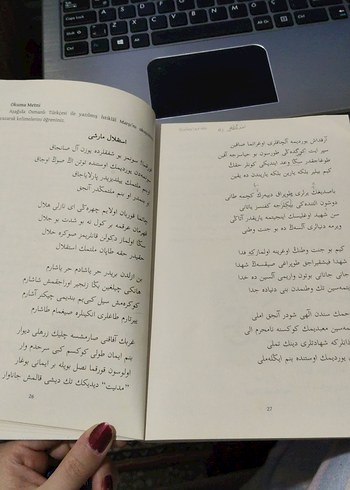 Okuma Metni
Aşağıda Osmanlı Türkçesi ile yazılmış İstiklâl Marşı'nı
kelimelerini öğreniniz.
استقلال مارشى
سونمز بو شفقلرده يوزن آل سانجاق
يوردمك اوستنده توتن اڭ صوڭ اوجاق
بنم ملتمك ييلديزيدر پارلاياجاق
او بنمدر او بنم ملتمكدر آنجق
چاتما قوربان اولايم چهره‌كى اى نازلى هلال
قهرمان عرقمه بر كول نه بو شدت بو جلال
سڭا اولماز دوكولن قانلريمز صوكره حلال
حقيدر حقه طاپان ملتمك استقلال
بن ازلدن بريدر حر ياشادم حر ياشارم
هانكى چيلغين بڭا زنجير اوراجقمش شاشارم
كوكره‌مش سيل كبى‌يم بندمى چيكنر آشارم
ييرتارم طاغلرى انكينلره صيغمام طاشارم
غربك آفاقنى صارمشسه چليك زرهلى ديوار
بنم ايمان طولى كوكسم كبى سرحدم وار
اولوسون قورقما نصل بويله بر ايمانى بوغار
"مدنيت" ديديكك تك ديشى قالمش جاناوار
26
آرقداش يورديمه آلچاقلرى اوغراتما صاقين
سپر ايت كوكده‌كى طورسون بو حياسزجه آقين
طوغاجقدر سڭا وعد ايتديكى كونلر حقك
كيم بيلير بلكه يارين بلكه ياريندن ده ياقين
يرلرى طوپراق دييه‌رك كچمه طانى
دوشون آلتنده‌كى بيڭلرجه كفنسز ياتانى
سن شهيد اوغليسك اينجيتمه يازيقدر آتاڭى
ويرمه دنيالرى آلسه‌ڭ ده بو جنت وطنى
كيم بو جنت وطنك اوغرينه اولمازكه فدا
شهدا فيشقيراجق طوپراغى صيقسه‌ڭ شهدا
جانى جانانى بوتون واريمى آلسين ده خدا
ايتمه‌سين تك وطنمدن بنى دنياده جدا
سندن الهى شودر آنجق املى
معبديمك كوكسنه نامحرم الى
شهادتلرى دينك تملى
يورديمك اوستنده بنم ايكله‌ملى
27